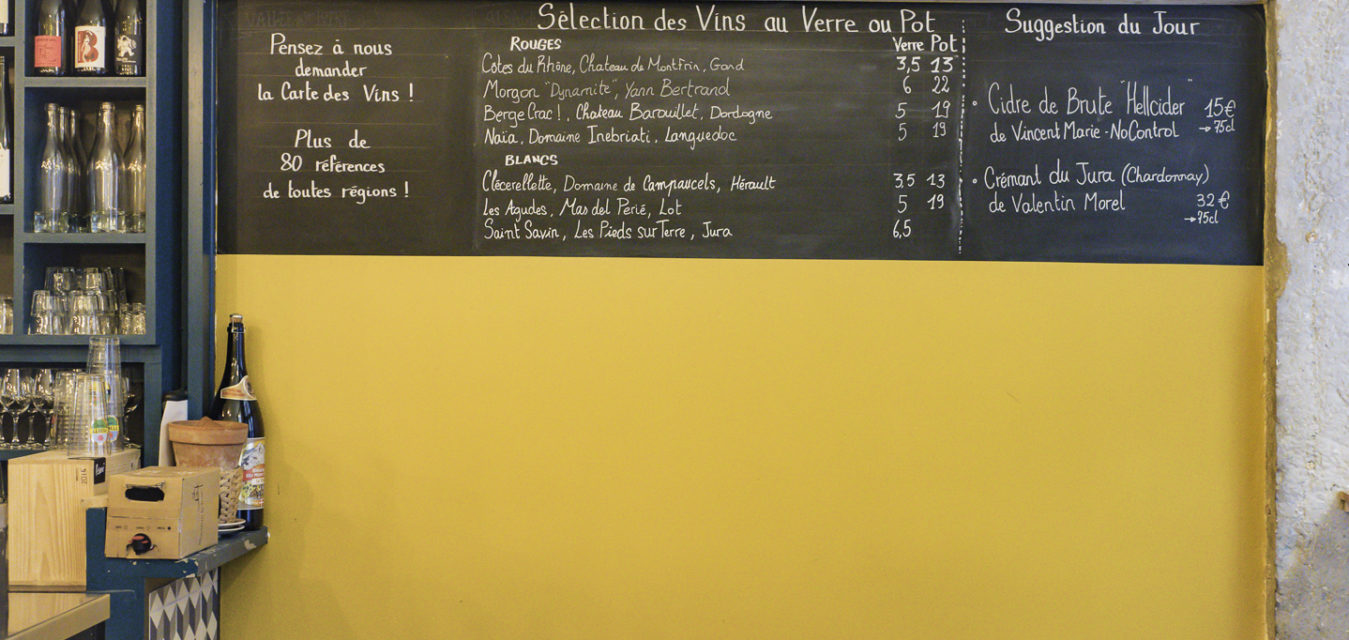 Pensez à nous
demander
la Carte des Vins !
Plus de
80 références
de toutes régions !
Sélection des Vins au Verre ou Pot
ROUGES Verre Pot
Côtes du Rhône, Chateau de Montfrin, Gard 3,5 13
Morgon "Dynamite", Yann Bertrand 6 22
Berge Crac !, Chateau Barouillet, Dordogne 5 19
Naïa, Domaine Inebriati, Languedoc 5 19
BLANCS
Clécerellette, Domaine de Campaucels, Hérault 3,5 13
Les Agudes, Mas del Perié, Lot 5 19
Saint Savin, Les Pieds sur Terre, Jura 6,5
Suggestion du Jour
• Cidre de Brute "Hellcider" 15€
de Vincent Marie - No Control → 75cl
• Crémant du Jura (Chardonnay)
de Valentin Morel 32€
→ 75cl
B
2016